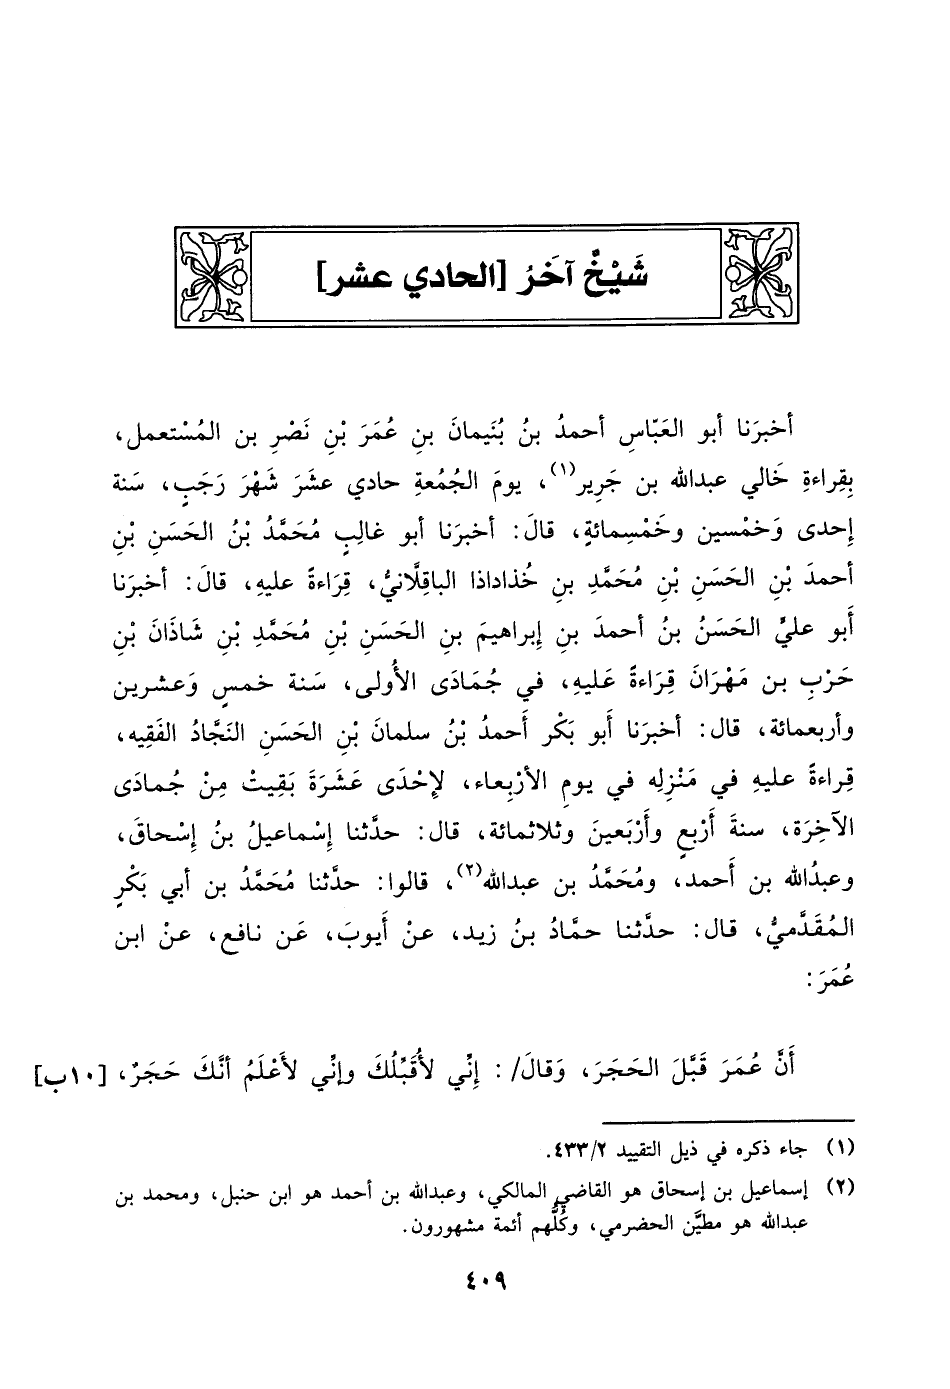 شَيْخٌ آخَرُ [الحادي عشر]
أخبرَنا أبو العَبّاسِ أحمدُ بنُ بُنَيمانَ بنِ عُمَرَ بْنِ نَصْرِ بن المُسْتعمل،
بِقِراءةِ خَالي عبدالله بن جَرِير(١)، يومَ الجُمُعةِ حادي عشَرَ شَهْرَ رَجَبٍ، سَنة
إحدى وَخمْسين وخَمْسِمائةٍ، قالَ: أخبرَنا أبو غالبٍ مُحَمَّدُ بْنُ الحَسَنِ بْنِ
أحمدَ بْنِ الحَسَنِ بْنِ مُحَمَّدِ بنِ خُذاداذا الباقِلَّانيُّ، قِراءةً عليهِ، قالَ: أخبرَنا
أَبو عليٍّ الحَسَنُ بنُ أحمدَ بنِ إِبراهيمَ بنِ الحَسَنِ بْنِ مُحَمَّدِ بْنِ شَاذَانَ بْنِ
حَرْبِ بن مَهْرَانَ قِرَاءةً عَليهِ، في جُمَادَى الأُولى، سَنة خمسٍ وَعشرين
وأربعمائة، قال: أخبرَنا أَبو بَكْر أَحمدُ بْنُ سلمانَ بْنِ الحَسَنِ النَجَّادُ الفَقِيه،
قِراءةً عليهِ في مَنْزِلِه في يومِ الأرْبِعاء، لإحْدَى عَشَرَةَ بَقِيتْ مِنْ جُمادَى
الآخِرَة، سنةَ أَرْبعٍ وأَرْبَعينَ وثلاثمائة، قال: حدَّثنا إِسْماعيلُ بنُ إِسْحاقَ،
وعبدُالله بن أَحمد، ومُحَمَّدُ بن عبدالله(٢)، قالوا: حدَّثنا مُحَمَّدُ بن أبي بَكْرٍ
المُقَدَّميُّ، قال: حدَّثنا حمَّادُ بنُ زيد، عنْ أَيوبَ، عَن نافع، عنْ ابن
عُمَرَ:
أَنَّ عُمَرَ قَبَّلَ الحَجَرَ، وَقالَ/ : إِنِّي لأُقَبِّلُكَ وإنِّي لأَعْلَمُ أنَّكَ حَجَرٌ، [١٠ب]
(١) جاء ذكره في ذيل التقييد ٤٣٣/٢.
(٢) إسماعيل بن إسحاق هو القاضي المالكي، وعبدالله بن أحمد هو ابن حنبل، ومحمد بن
عبدالله هو مطيَّن الحضرمي، وكُلُّهم أئمة مشهورون.
٤٠٩